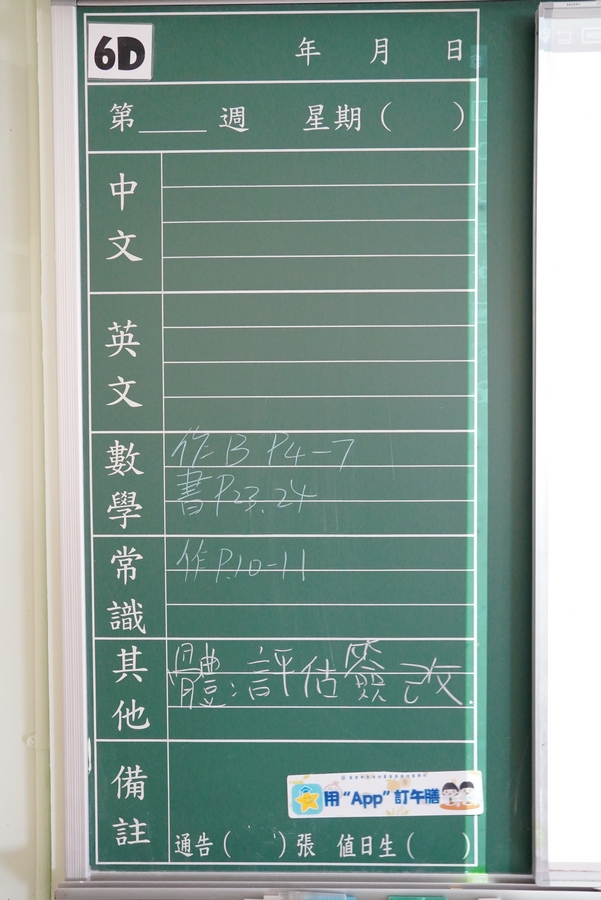 6D 年 月 日
第____週 星期（ ）
中文
英文
數學
作B P4-7
書P23.24
常識
作P.10-11
其他
體:評估簽改.
備註
用“App”訂午膳
通告（ ）張 值日生（ ）